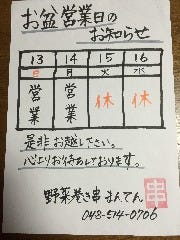 お盆営業日の
お知らせ
13 14 15 16
日 月 火 水
営業 営業 休 休
是非お越し下さい。
心よりお待ちしております。
野菜巻き串 まんてん
串
048-514-0706